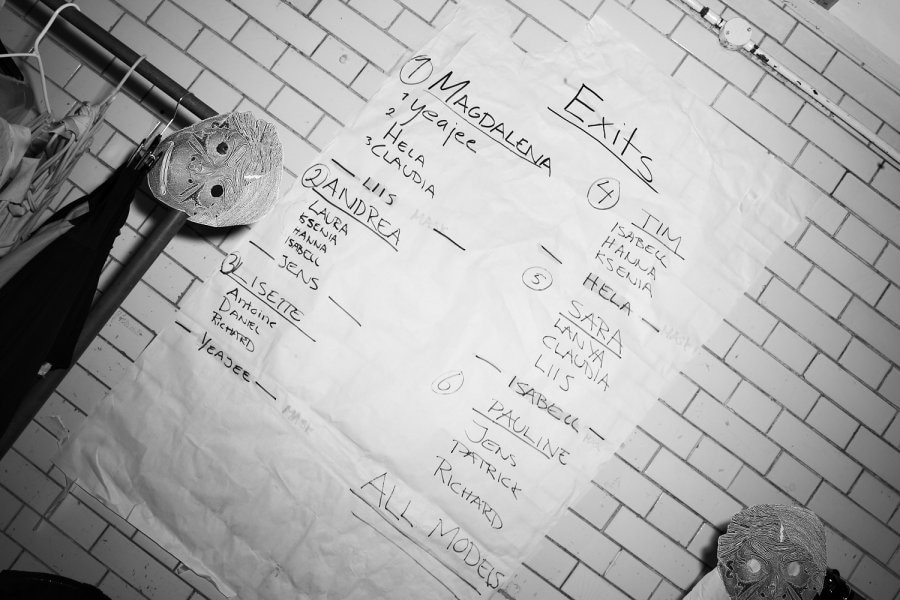 Exits
① MAGDALENA
1 Yeajee
2 HELA
3 CLAUDIA
— LIIS — MASK
② ANDREA
LAURA
KSENIA
HANNA
ISABELL
— JENS —
③ LISETTE
Antoine
DANIEL
RICHARD
— YEAJEE — MASK
④ TIM
ISABELL
HANNA
KSENIA
— HELA — MASK
⑤ SARA
LANYA
CLAUDIA
LIIS
— ISABELL —
⑥ PAULINE
JENS
PATRICK
RICHARD
ALL MODELS